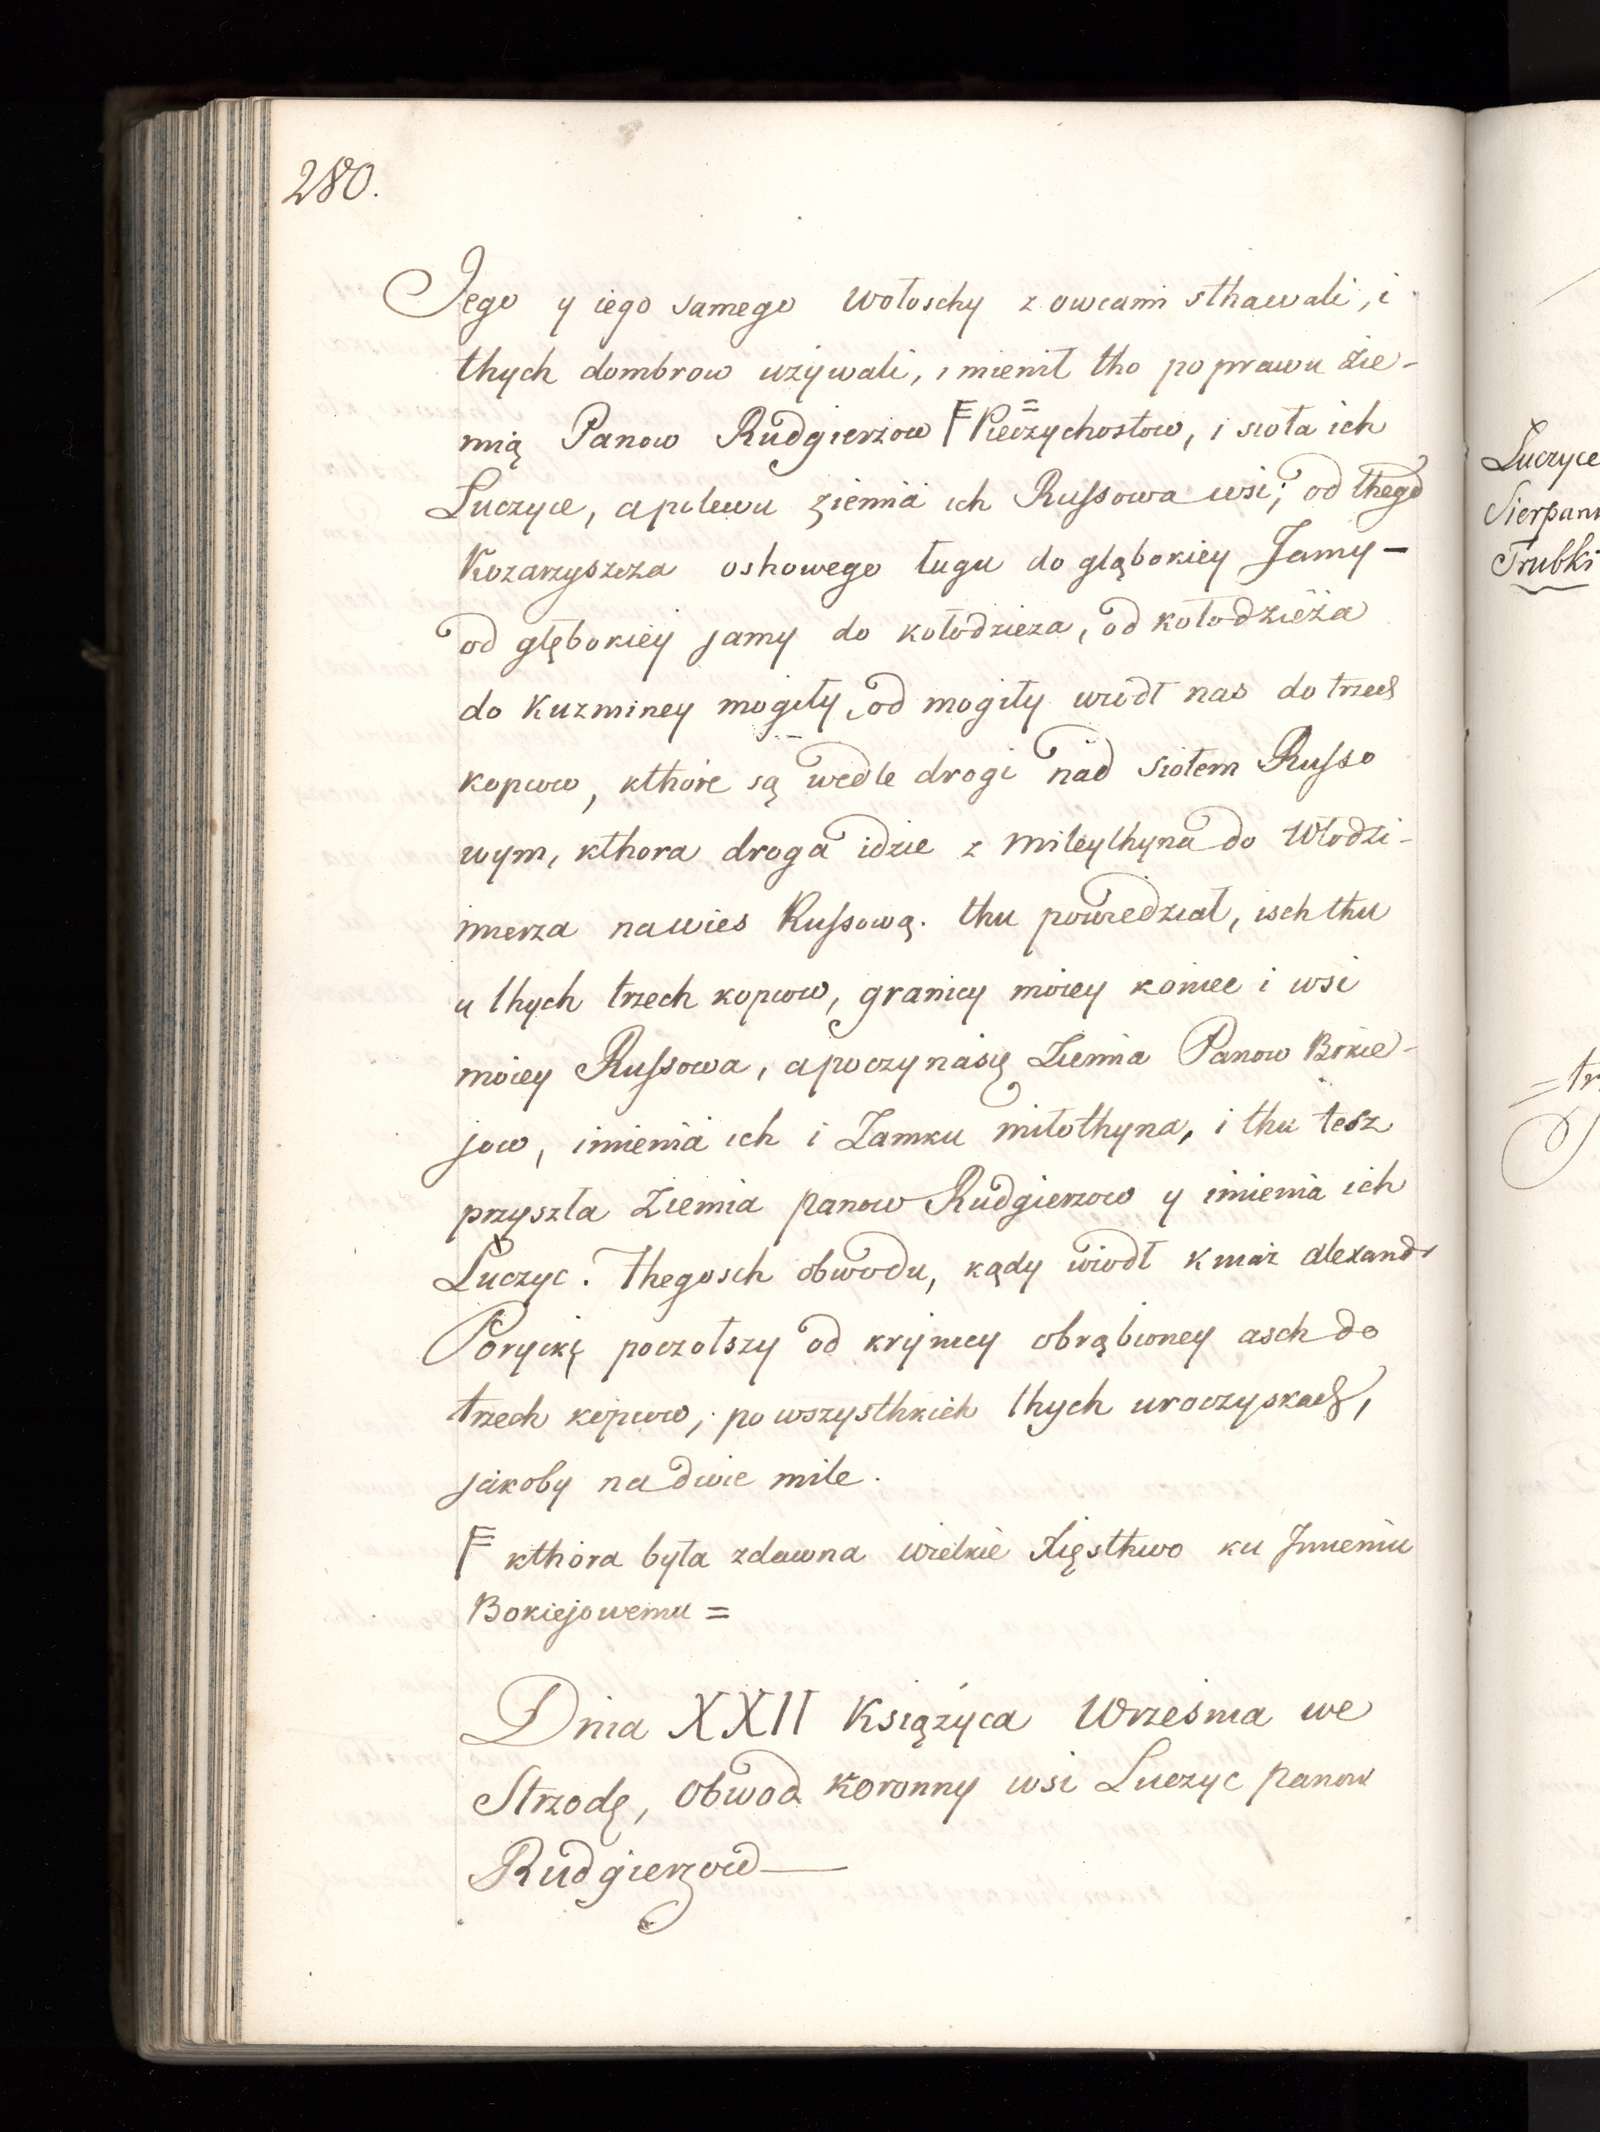 280.
Jego y iego samego Wołoschy z owcami sthawali, i
thych dombrow używali, i mienił tho po prawu Zie-
mią Panow Rudgierzow F Pierzychostow, i sioła ich
Luczyce, a polewu ziemia ich Russowa wsi; od thego
Kozarzyszcza oskowego ługu do gląbokiey Jamy –
od głębokiey jamy do kołodzieza, od kołodzieża
do Kuzminey mogiły, od mogiły wiodł nas do trzech
kopcow, kthore są wedle drogi nad siołem Russo
wym, kthora droga idzie z Mileythyna do Włodzi-
mierza na wies Russową. thu powiedział, isch thu
u thych trzech kopcow, granicy moiey koniec i wsi
moiey Russowa, a poczyna się Ziemia Panow Bokie-
jow, imienia ich i Zamku miłothyna, i thu tesz
przyszła Ziemia panow Rudgierzow y imienia ich
Luczyc. Thegosch obwodu, kądy wiodł kniaź Alexandr
Poryckį poczołszy od kryńicy obrąbioney asch do
trzech kopcow, po wszysthkich thych uroczyskach,
jakoby na dwie mile.
F kthora była zdawna wielkie Xięsthwo ku Jmieniu
Bokiejowemu =
Dnia XXII Księżyca Wrzesnia we
Strzodę, Obwod Koronny wsi Luczyc panow
Rudgierzow —
Luczyce
Trubki